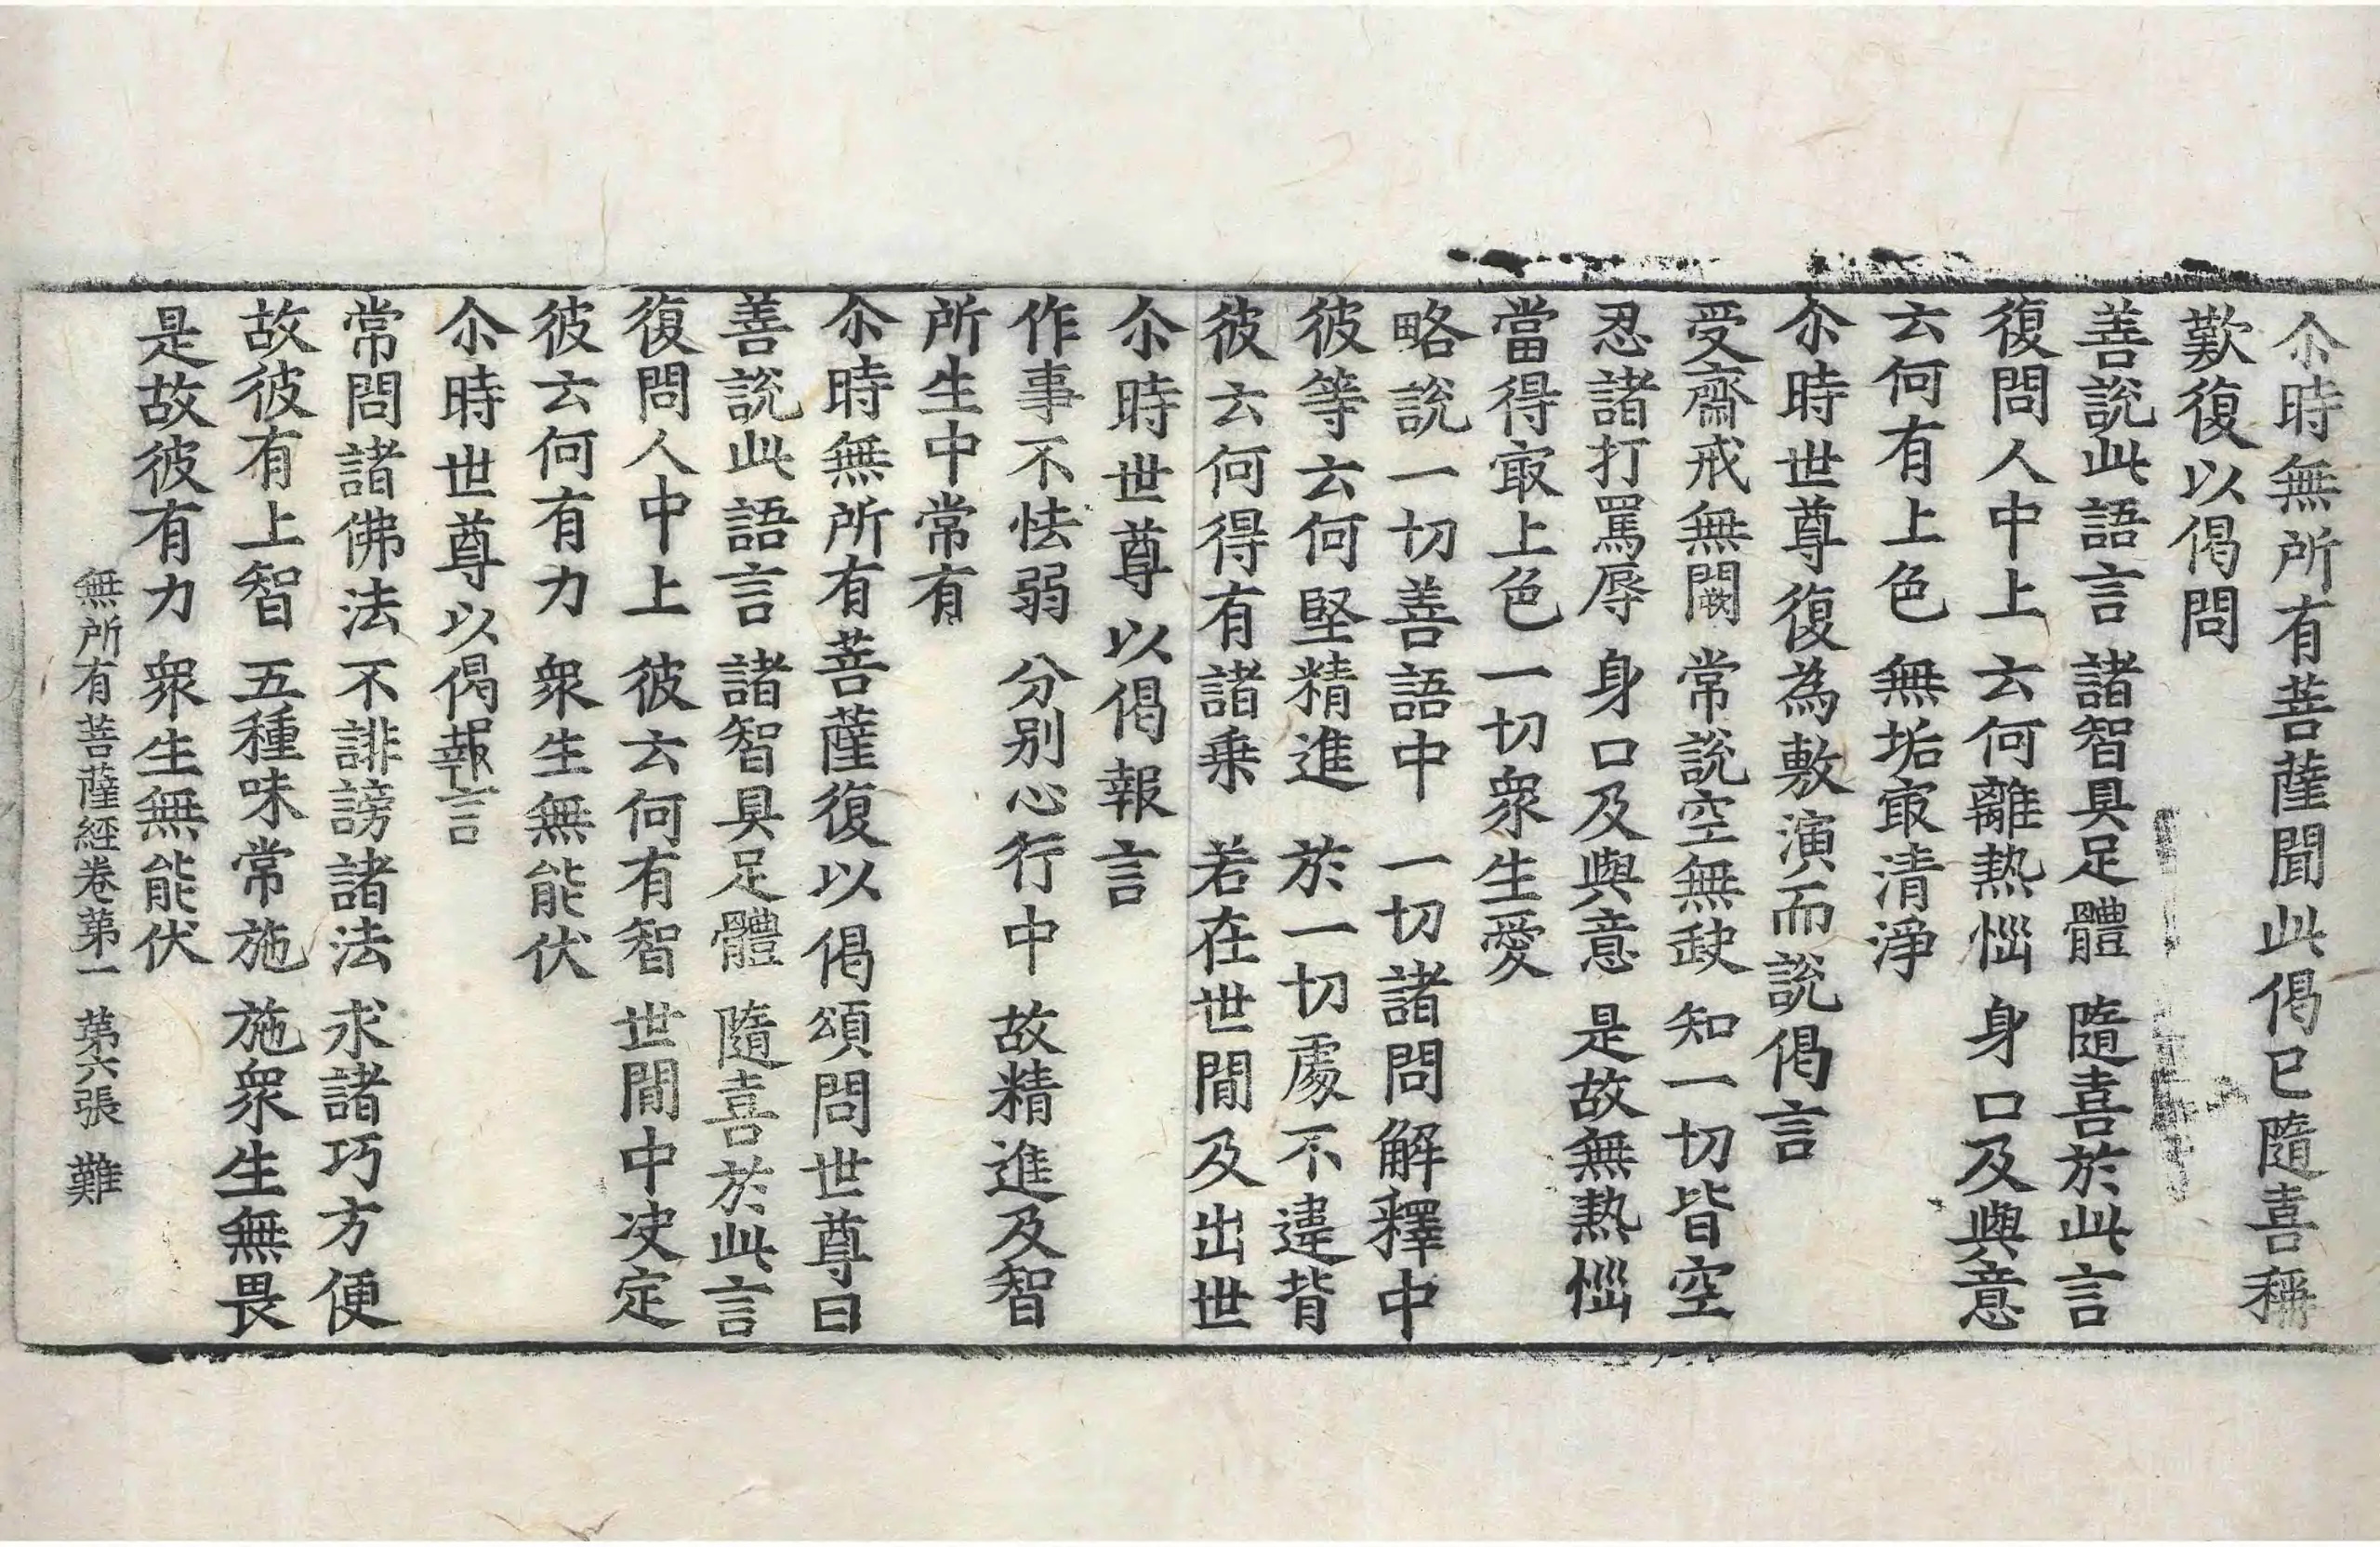 尒時無所有菩薩聞此偈已隨喜稱
歎復以偈問
善說此語言 諸智具足體 隨喜於此言
復問人中上 云何離熱惱 身口及與意
云何有上色 無垢㝡清淨
尒時世尊復為敷演而說偈言
受齋戒無闕 常說空無缺 知一切皆空
忍諸打罵辱 身口及與意 是故無熱惱
當得㝡上色 一切衆生愛
略說一切善語中 一切諸問解釋中
彼等云何堅精進 於一切處不違背
彼云何得有諸乗 若在世間及出世
尒時世尊以偈報言
作事不怯弱 分别心行中 故精進及智
所生中常有
尒時無所有菩薩復以偈頌問世尊曰
善說此語言 諸智具足體 隨喜於此言
復問人中上 彼云何有智 世間中决定
彼云何有力 衆生無能伏
尒時世尊以偈報言
常問諸佛法 不誹謗諸法 求諸巧方便
故彼有上智 五種味常施 施衆生無畏
是故彼有力 衆生無能伏
無所有菩薩經卷苐一 苐六張 難